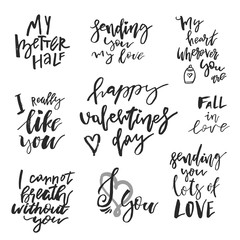 MY
BETTER
HALF
sending
you
my love
My
heart
wherever
you are
I Really
like
you
happy
valentines
day
FALL
in
love
I cannot
Breath
without
you
I you
sending
you
Lots of
LOVE